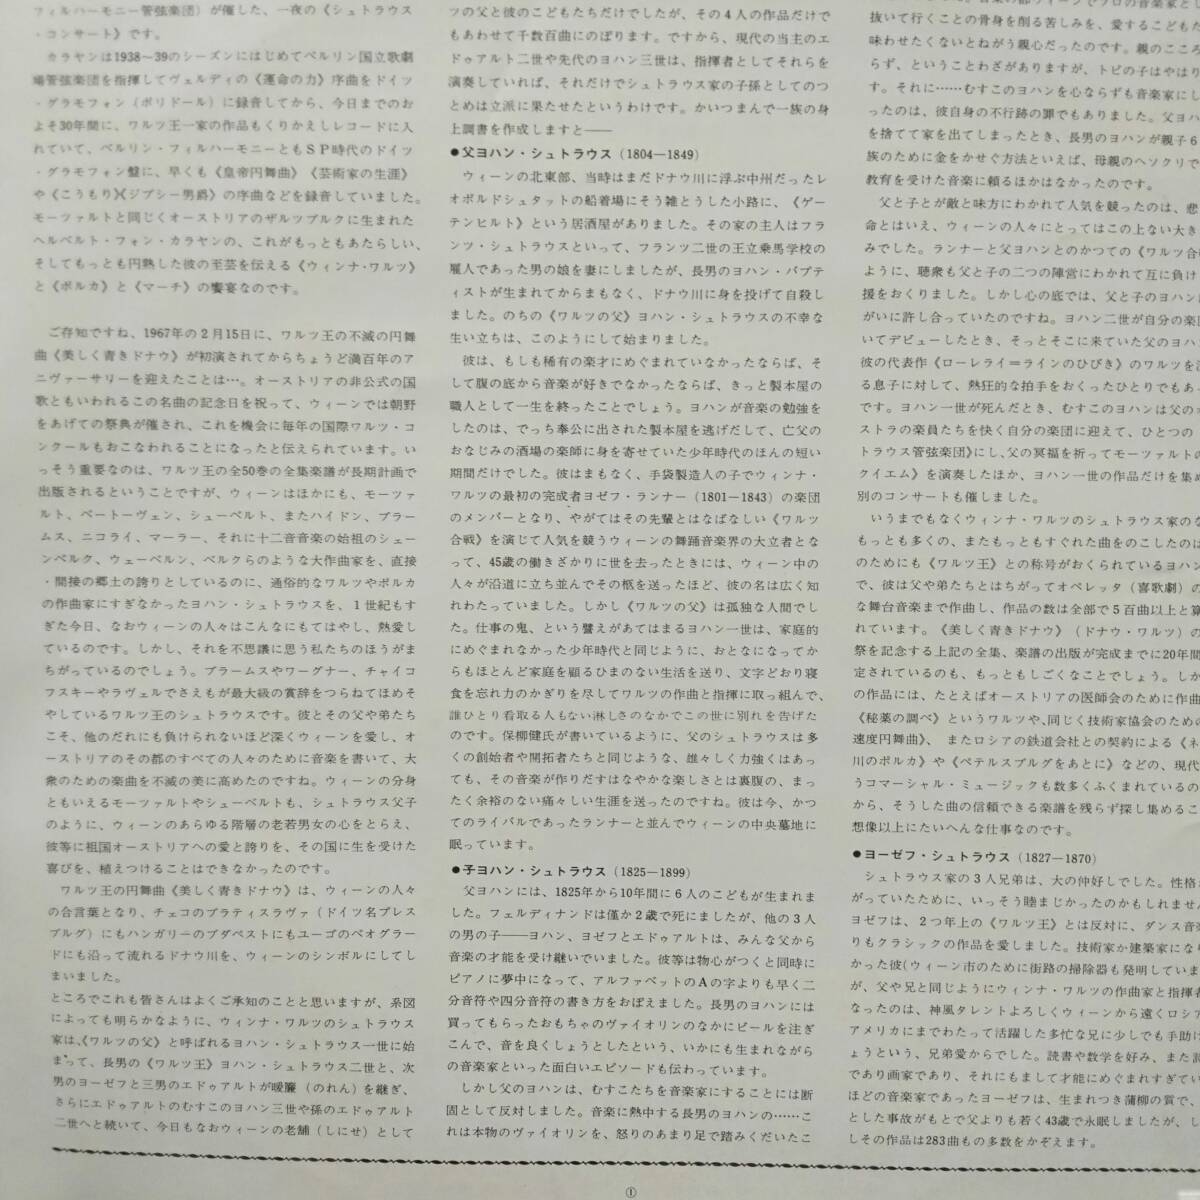 フィルハーモニー管弦楽団）が催した、一夜の《シュトラウス
・コンサート》です。
カラヤンは1938～39のシーズンにはじめてベルリン国立歌劇
場管弦楽団を指揮してヴェルディの《運命の力》序曲をドイツ
・グラモフォン（ポリドール）に録音してから、今日までのお
よそ30年間に、ワルツ王一家の作品もくりかえしレコードに入
れていて、ベルリン・フィルハーモニーともSP時代のドイツ
・グラモフォン盤に、早くも《皇帝円舞曲》《芸術家の生涯》
や《こうもり》《ジプシー男爵》の序曲などを録音していました。
モーツァルトと同じくオーストリアのザルツブルクに生まれた
ヘルベルト・フォン・カラヤンの、これがもっともあたらしい、
そしてもっとも円熟した彼の至芸を伝える《ウィンナ・ワルツ》
と《ポルカ》と《マーチ》の饗宴なのです。
ご存知ですね、1967年の2月15日に、ワルツ王の不滅の円舞
曲《美しく青きドナウ》が初演されてからちょうど満百年のア
ニヴァーサリーを迎えたことは…。オーストリアの非公式の国
歌ともいわれるこの名曲の記念日を祝って、ウィーンでは朝野
をあげての祭典が催され、これを機会に毎年の国際ワルツ・コ
ンクールもおこなわれることになったと伝えられています。い
っそう重要なのは、ワルツ王の全50巻の全集楽譜が長期計画で
出版されるということですが、ウィーンはほかにも、モーツァ
ルト、ベートーヴェン、シューベルト、またハイドン、ブラー
ムス、ニコライ、マーラー、それに十二音音楽の始祖のシェー
ンベルク、ウェーベルン、ベルクらのような大作曲家を、直接
・間接の郷土の誇りとしているのに、通俗的なワルツやポルカ
の作曲家にすぎなかったヨハン・シュトラウスを、1世紀もす
ぎた今日、なおウィーンの人々はこんなにもてはやし、熱愛し
ているのです。しかし、それを不思議に思う私たちのほうがま
ちがっているのでしょう。ブラームスやワーグナー、チャイコ
フスキーやラヴェルでさえもが最大級の賞辞をつらねてほめそ
やしているワルツ王のシュトラウスです。彼とその父や弟たち
こそ、他のだれにも負けられないほど深くウィーンを愛し、オ
ーストリアのその都のすべての人々のために音楽を書いて、大
衆のための楽曲を不滅の美に高めたのですね。ウィーンの分身
ともいえるモーツァルトやシューベルトも、シュトラウス父子
のように、ウィーンのあらゆる階層の老若男女の心をとらえ、
彼等に祖国オーストリアへの愛と誇りを、その国に生を受けた
喜びを、植えつけることはできなかったのです。
ワルツ王の円舞曲《美しく青きドナウ》は、ウィーンの人々
の合言葉となり、チェコのブラティスラヴァ（ドイツ名プレス
ブルグ）にもハンガリーのブダペストにもユーゴのベオグラー
ドにも沿って流れるドナウ川を、ウィーンのシンボルにしてし
まいました。
ところでこれも皆さんはよくご承知のことと思いますが、系図
によっても明らかなように、ウィンナ・ワルツのシュトラウス
家は、《ワルツの父》と呼ばれるヨハン・シュトラウス一世に始
まって、長男の《ワルツ王》ヨハン・シュトラウス二世と、次
男のヨーゼフと三男のエドゥアルトが暖簾（のれん）を継ぎ、
さらにエドゥアルトのむすこのヨハン三世や孫のエドゥアルト
二世へと続いて、今日もなおウィーンの老舗（しにせ）として
ツの父と彼のこどもたちだけでしたが、その4人の作品だけで
もあわせて千数百曲にのぼります。ですから、現代の当主のエ
ドゥアルト二世や先代のヨハン三世は、指揮者としてそれらを
演奏していれば、それだけでシュトラウス家の子孫としてのつ
とめは立派に果たせたというわけです。かいつまんで一族の身
上調書を作成しますと――
●父ヨハン・シュトラウス（1804―1849）
ウィーンの北東部、当時はまだドナウ川に浮ぶ中州だったレ
オポルドシュタットの船着場にそう雑とうした小路に、《ゲー
テンヒルト》という居酒屋がありました。その家の主人はフラ
ンツ・シュトラウスといって、フランツ二世の王立乗馬学校の
雇人であった男の娘を妻にしましたが、長男のヨハン・バプテ
ィストが生まれてからまもなく、ドナウ川に身を投げて自殺し
ました。のちの《ワルツの父》ヨハン・シュトラウスの不幸な
生い立ちは、このようにして始まりました。
彼は、もしも稀有の楽才にめぐまれていなかったならば、そ
して腹の底から音楽が好きでなかったならば、きっと製本屋の
職人として一生を終ったことでしょう。ヨハンが音楽の勉強を
したのは、でっち奉公に出された製本屋を逃げだして、亡父の
おなじみの酒場の楽師に身を寄せていた少年時代のほんの短い
期間だけでした。彼はまもなく、手袋製造人の子でウィンナ・
ワルツの最初の完成者ヨゼフ・ランナー（1801―1843）の楽団
のメンバーとなり、やがてはその先輩とはなばなしい《ワルツ
合戦》を演じて人気を競うウィーンの舞踊音楽界の大立者とな
って、45歳の働きざかりに世を去ったときには、ウィーン中の
人々が沿道に立ち並んでその柩を送ったほど、彼の名は広く知
れわたっていました。しかし《ワルツの父》は孤独な人間でし
た。仕事の鬼、という譬えがあてはまるヨハン一世は、家庭的
にめぐまれなかった少年時代と同じように、おとなになってか
らもほとんど家庭を顧るひまのない生活を送り、文字どおり寝
食を忘れ力のかぎりを尽してワルツの作曲と指揮に取っ組んで、
誰ひとり看取る人もない淋しさのなかでこの世に別れを告げた
のです。保柳健氏が書いているように、父のシュトラウスは多
くの創始者や開拓者たちと同じような、雄々しく力強くはあっ
ても、その音楽が作りだすはなやかな楽しさとは裏腹の、まっ
たく余裕のない痛々しい生涯を送ったのですね。彼は今、かつ
てのライバルであったランナーと並んでウィーンの中央墓地に
眠っています。
●子ヨハン・シュトラウス（1825―1899）
父ヨハンには、1825年から10年間に6人のこどもが生まれま
した。フェルディナンドは僅か2歳で死にましたが、他の3人
の男の子――ヨハン、ヨゼフとエドゥアルトは、みんな父から
音楽の才能を受け継いでいました。彼等は物心がつくと同時に
ピアノに夢中になって、アルファベットのAの字よりも早く二
分音符や四分音符の書き方をおぼえました。長男のヨハンには
買ってもらったおもちゃのヴァイオリンのなかにビールを注ぎ
こんで、音を良くしょうとしたという、いかにも生まれながら
の音楽家といった面白いエピソードも伝わっています。
しかし父のヨハンは、むすこたちを音楽家にすることには断
固として反対しました。音楽に熱中する長男のヨハンの……こ
れは本物のヴァイオリンを、怒りのあまり足で踏みくだいたこ
抜いて行くことの骨身を削る苦しみを、愛するこどもた
味わせたくないとねがう親心だったのです。親のこころ
らず、ということわざがありますが、トビの子はやはり
す。それに……むすこのヨハンを心ならずも音楽家にし
ったのは、彼自身の不行跡の罪でもありました。父ヨハ
を捨てて家を出てしまったとき、長男のヨハンが親子6
族のために金をかせぐ方法といえば、母親のヘソクリで
教育を受けた音楽に頼るほかはなかったのです。
父と子とが敵と味方にわかれて人気を競ったのは、悲
命とはいえ、ウィーンの人々にとってはこの上ない大き
みでした。ランナーと父ヨハンとのかつての《ワルツ合
ように、聴衆も父と子の二つの陣営にわかれて互に負け
援をおくりました。しかし心の底では、父と子のヨハン
がいに許し合っていたのですね。ヨハン二世が自分の楽
いてデビューしたとき、そっとそこに来ていた父のヨハ
彼の代表作《ローレライ＝ラインのひびき》のワルツを
る息子に対して、熱狂的な拍手をおくったひとりでもあ
です。ヨハン一世が死んだとき、むすこのヨハンは父の
ストラの楽員たちを快く自分の楽団に迎えて、ひとつの
トラウス管弦楽団》にし、父の冥福を祈ってモーツァルトの
クイエム》を演奏したほか、ヨハン一世の作品だけを集め
別のコンサートも催しました。
いうまでもなくウィンナ・ワルツのシュトラウス家のな
もっとも多くの、またもっともすぐれた曲をのこしたのは
のためにも《ワルツ王》との称号がおくられているヨハン
で、彼は父や弟たちとはちがってオペレッタ（喜歌劇）の
な舞台音楽まで作曲し、作品の数は全部で5百曲以上と算
れています。《美しく青きドナウ》（ドナウ・ワルツ）の
祭を記念する上記の全集、楽譜の出版が完成までに20年間
定されているのも、もっともしごくなことでしょう。しか
の作品には、たとえばオーストリアの医師会のために作曲
《秘薬の調べ》というワルツや、同じく技術家協会のための
速度円舞曲》、またロシアの鉄道会社との契約による《ネ
川のポルカ》や《ペテルスブルグをあとに》などの、現代
うコマーシャル・ミュージックも数多くふくまれているの
から、そうした曲の信頼できる楽譜を残らず探し集めるこ
想像以上にたいへんな仕事なのです。
●ヨーゼフ・シュトラウス（1827―1870）
シュトラウス家の3人兄弟は、大の仲好しでした。性格
がっていたために、いっそう睦まじかったのかもしれません
ヨゼフは、2つ年上の《ワルツ王》とは反対に、ダンス音楽
りもクラシックの作品を愛しました。技術家か建築家になり
かった彼（ウィーン市のために街路の掃除器も発明していま
が、父や兄と同じようにウィンナ・ワルツの作曲家と指揮者
なったのは、神風タレントよろしくウィーンから遠くロシア
アメリカにまでわたって活躍した多忙な兄に少しでも手助け
ょうという、兄弟愛からでした。読書や数学を好み、また詩
であり画家であり、それにもまして才能にめぐまれすぎてい
ほどの音楽家であったヨーゼフは、生まれつき蒲柳の質で、
とした事故がもとで父よりも若く43歳で永眠しましたが、し
しその作品は283曲もの多数をかぞえます。
①